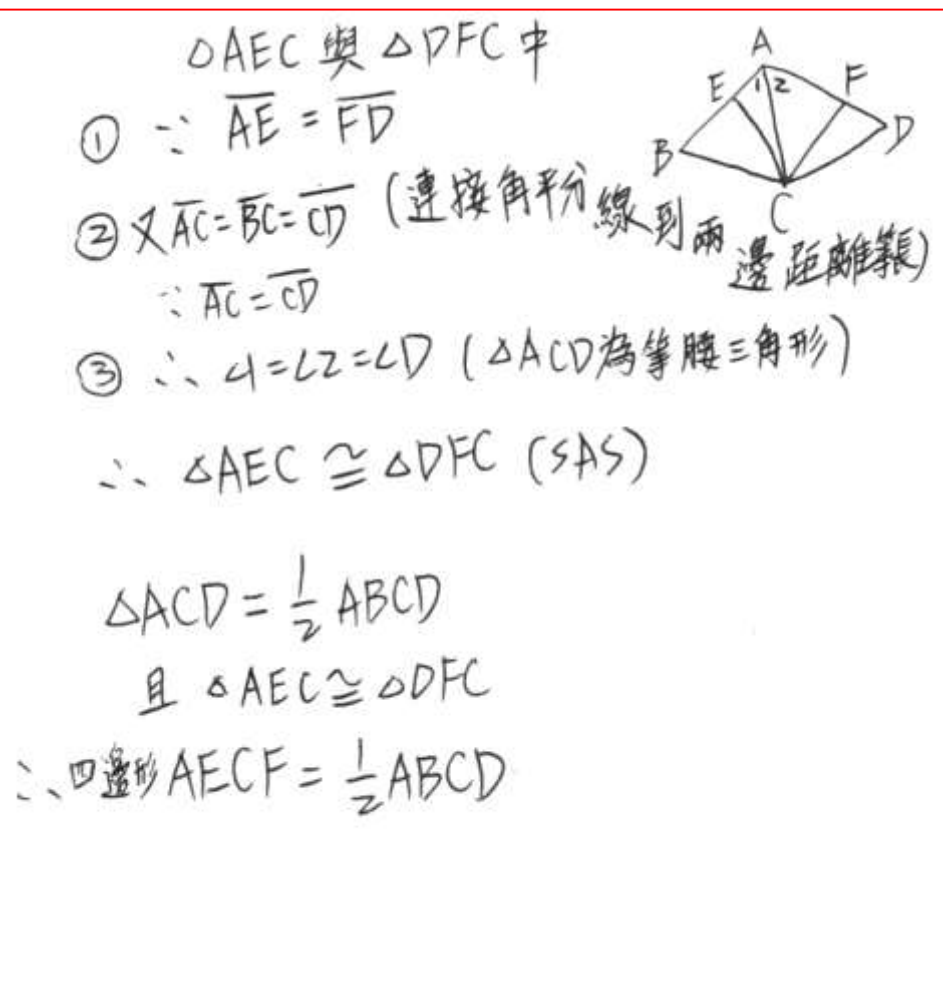 △AEC 與 △DFC 中
① ∵ \overline{AE} = \overline{FD}
② 又 \overline{AC} = \overline{BC} = \overline{CD} (連接角平分線到兩邊距離等長)
∵ \overline{AC} = \overline{CD}
③ ∴ ∠1=∠2=∠D (△ACD為等腰三角形)
∴ △AEC ≅ △DFC (SAS)
△ACD = \frac{1}{2} ABCD
且 △AEC ≅ △DFC
∴ 四邊形 AECF = \frac{1}{2} ABCD
A
E
1 2
F
B
D
C